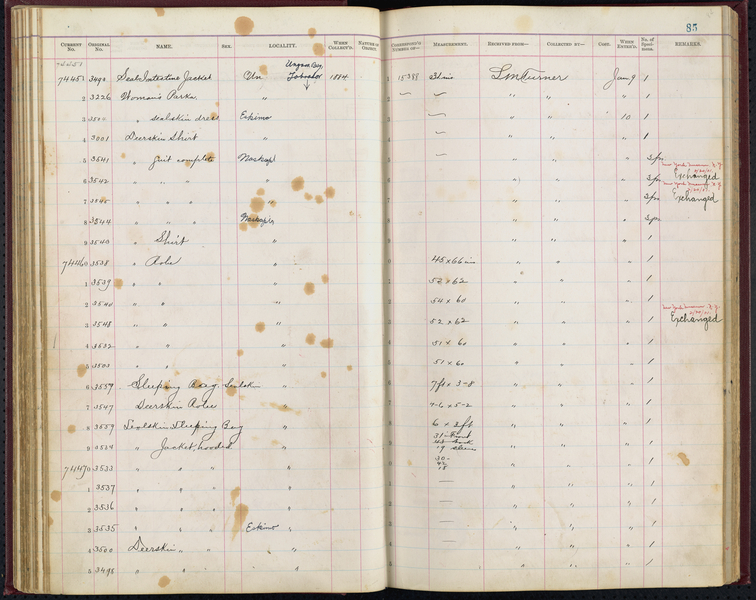 85
CURRENT No. ORIGINAL No. NAME. SEX. LOCALITY. WHEN COLLECT'D. NATURE OF OBJECT. CORRESPOND'G NUMBER OF— MEASUREMENT. RECEIVED FROM— COLLECTED BY— COST. WHEN ENTER'D. No. of Speci-mens. REMARKS.
Ungava Bay
74451 3490 Seal Intestine Jacket Un Labrador 1884 1 15388 L.M. Turner Jan 9 1
2 3226 Woman's Parka " " " " 1
3 " sealskin dress Eskimo " " 10 1
4 3001 Deerskin Shirt " " " " 1
5 3541 " suit complete Naskapi " " " 3/ps
New York Museum N.Y.
Exchanged
6 3542 " " " " " " " 3/ps
New York Museum N.Y.
Exchanged
7 " " " " " " " 3/ps
8 3544 " " " Naskapi " " " 3/ps
9 3540 " Shirt " " " " 1
74460 3538 " Robe " 45 x 66 in " " " 1
1 3539 " " " 52 x 62 " " " 1
2 " " " 54 x 60 " " " 1
New York Museum N.Y.
Exchanged
3 3548 " " " 52 x 62 " " " 1
4 3532 " " " 51 x 60 " " " 1
5 " " " 51 x 60 " " " 1
6 3557 Sleeping Bag Sealskin " 7ft x 3-8 " " " 1
7 3547 Deerskin Robe " 4-6 x 5-2 " " " 1
8 3559 Sealskin Sleeping Bag " 6 x 2ft " " " 1
31- Front
43 Back
9 " Jacket, hooded " 19 Sleeve " " " 1
30-
42
74470 3533 " " " " 18 " " " 1
1 3537 " " " " — " " " 1
2 3536 " " " " — " " " 1
3 3535 " " " Eskimo " — " " " 1
4 3500 Deerskin " " " — " " " 1
5 3498 " " — " " " 1